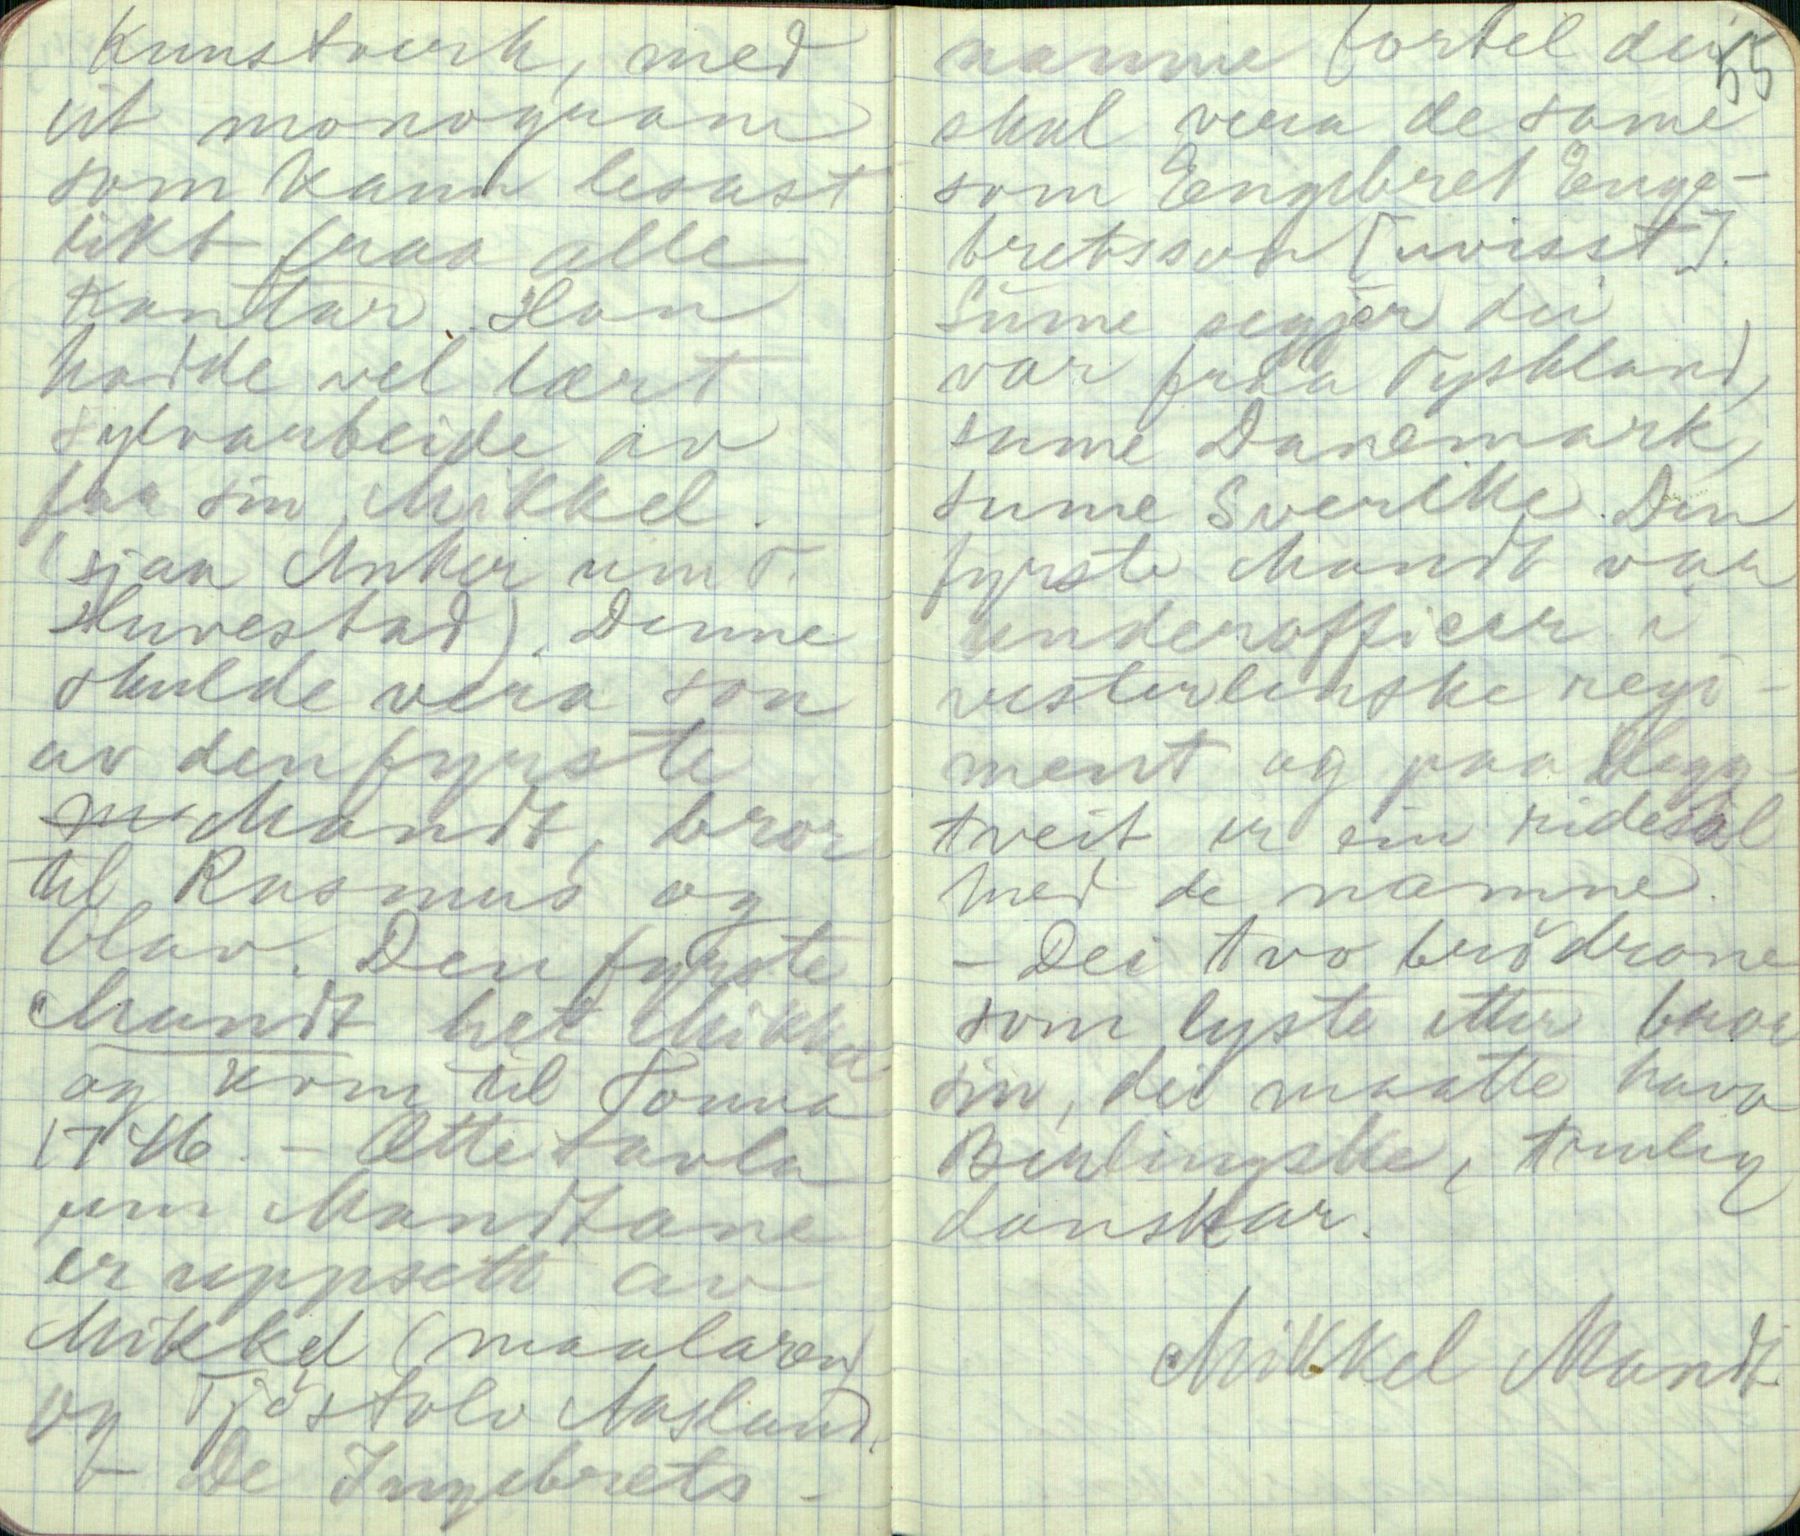 Kunstverk, med
eit monogram
som kann lesast
likt fraa alle
Kantar. Han
hadde vel lært
sylvarbeide av
faa sin Mikkel.
(sjaa Anker um T.
Huvestad). Denne
skulde vera son
av den fyrste
Mandt, bror
til Rasmus og
Olav. Den fyrste
Mandt het Mikkel
og kom til
1746. – Ættetavla
um Mandtane
er uppsett av
Mikkel (maalaren)
og Tjöstolv Aasland.
– De Ingebrets-
55
namne fortel dei
skul vera de same
som Engebret Enge-
bretsson [uvisst].
Sume segjer dei
var fraa Tyskland,
sume Danemark,
sume Sverike. Den
fyrste Mandt var
underofficer i
vesterlenske regi-
ment og paa Hegg-
tveit er ein ridesal
med de namne.
– Dei tvo brödrane
som lyste etter bror
sin, dei maatte hava
Berlingske, truleg
danskar.
Mikkel Mandt